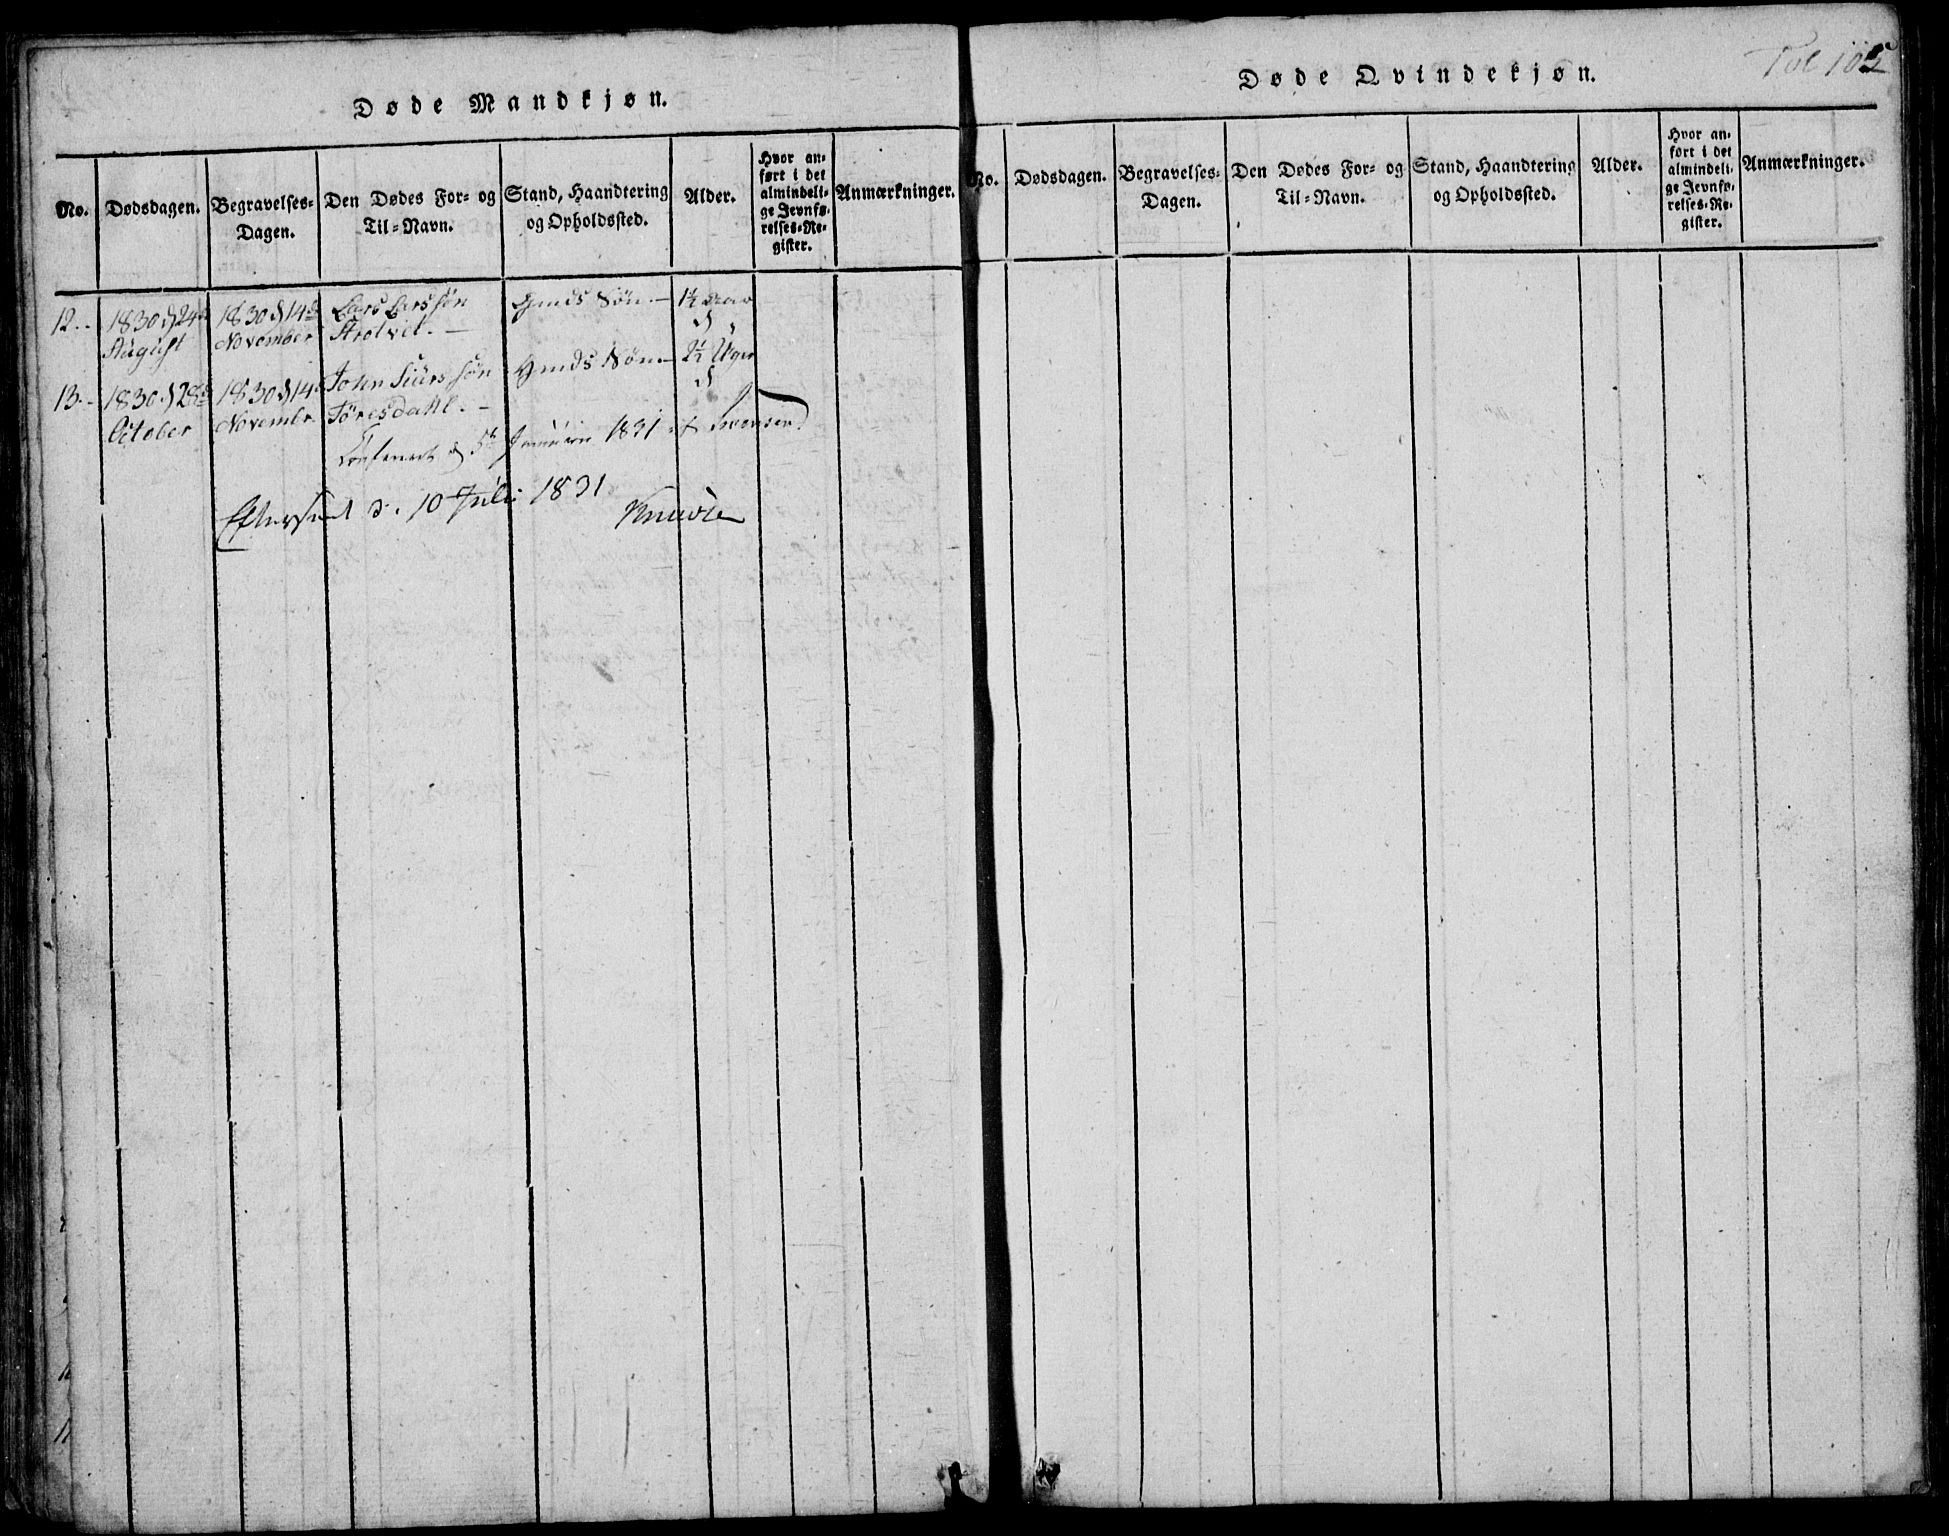 Døde Mandkjøn.
No.
Dødsdagen.
Begravelses-
Dagen.
Den Dødes For- og
Til-Navn.
Stand, Haandtering
og Opholdssted.
Alder.
Hvor an-
ført i det
almindeli-
ge Jevnfø-
relses-Re-
gister.
Anmærkninger.
12..
1830 d 24de
August
1830 d 14de
November
Lars Larssøn
Strotvet. —
Gmds Søn. —
13.-
1830 d 28de
October
1830 d 14de
Novembr.
John Siurssøn
Tøresdahl. —
Gmds Søn. —
2½ Uger
Confereret d 5te Januari 1831 af
Efterseet d. 10 Juli 1831
Fol 105
Døde Qvindekjøn.
No.
Dødsdagen.
Begravelses-
Dagen.
Den Dødes For- og
Til-Navn.
Stand, Haandtering
og Opholdssted.
Alder.
Hvor an-
ført i det
almindeli-
ge Jevnfø-
relses-Re-
gister.
Anmærkninger.